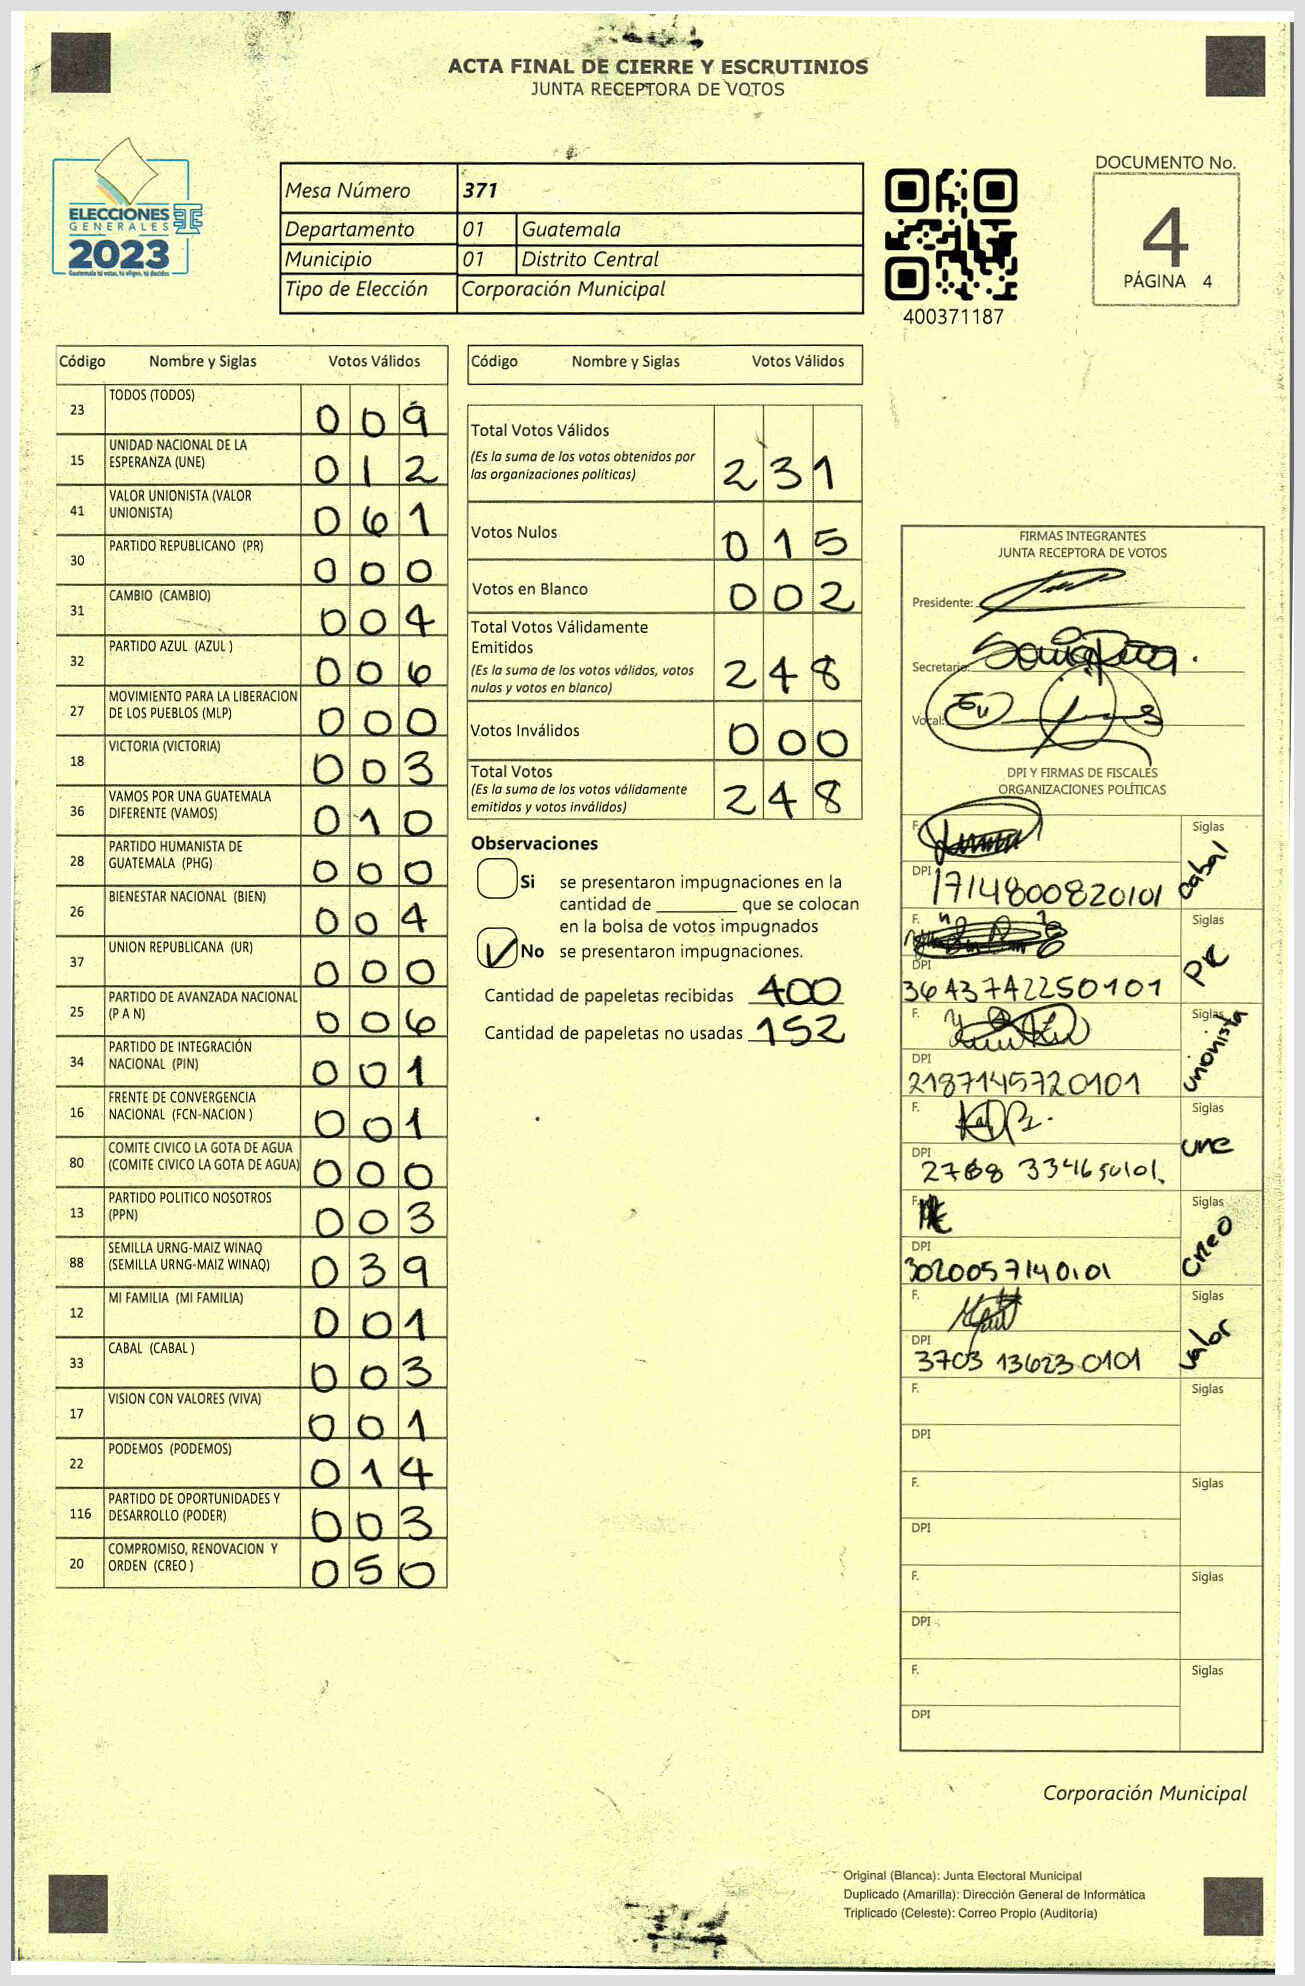 ACTA FINAL DE CIERRE Y ESCRUTINIOS
JUNTA RECEPTORA DE VOTOS
ELECCIONES
GENERALES
2023
Guatemala tú votas, tú eliges, tú decides
Mesa Número 371
Departamento 01 Guatemala
Municipio 01 Distrito Central
Tipo de Elección Corporación Municipal
400371187
DOCUMENTO No.
4
PÁGINA 4
Código Nombre y Siglas Votos Válidos
23 TODOS (TODOS) 0 0 9
15 UNIDAD NACIONAL DE LA
ESPERANZA (UNE) 0 1 2
41 VALOR UNIONISTA (VALOR
UNIONISTA) 0 6 1
30 PARTIDO REPUBLICANO (PR) 0 0 0
31 CAMBIO (CAMBIO) 0 0 4
32 PARTIDO AZUL (AZUL ) 0 0 6
27 MOVIMIENTO PARA LA LIBERACION
DE LOS PUEBLOS (MLP) 0 0 0
18 VICTORIA (VICTORIA) 0 0 3
36 VAMOS POR UNA GUATEMALA
DIFERENTE (VAMOS) 0 1 0
28 PARTIDO HUMANISTA DE
GUATEMALA (PHG) 0 0 0
26 BIENESTAR NACIONAL (BIEN) 0 0 4
37 UNION REPUBLICANA (UR) 0 0 0
25 PARTIDO DE AVANZADA NACIONAL
(P A N) 0 0 6
34 PARTIDO DE INTEGRACIÓN
NACIONAL (PIN) 0 0 1
16 FRENTE DE CONVERGENCIA
NACIONAL (FCN-NACION ) 0 0 1
80 COMITE CIVICO LA GOTA DE AGUA
(COMITE CIVICO LA GOTA DE AGUA) 0 0 0
13 PARTIDO POLITICO NOSOTROS
(PPN) 0 0 3
88 SEMILLA URNG-MAIZ WINAQ
(SEMILLA URNG-MAIZ WINAQ) 0 3 9
12 MI FAMILIA (MI FAMILIA) 0 0 1
33 CABAL (CABAL ) 0 0 3
17 VISION CON VALORES (VIVA) 0 0 1
22 PODEMOS (PODEMOS) 0 1 4
116 PARTIDO DE OPORTUNIDADES Y
DESARROLLO (PODER) 0 0 3
20 COMPROMISO, RENOVACION Y
ORDEN (CREO ) 0 5 0
Código Nombre y Siglas Votos Válidos
Total Votos Válidos
(Es la suma de los votos obtenidos por
las organizaciones políticas) 2 3 1
Votos Nulos 0 1 5
Votos en Blanco 0 0 2
Total Votos Válidamente
Emitidos
(Es la suma de los votos válidos, votos
nulos y votos en blanco) 2 4 8
Votos Inválidos 0 0 0
Total Votos
(Es la suma de los votos válidamente
emitidos y votos inválidos) 2 4 8
Observaciones
Si se presentaron impugnaciones en la
cantidad de ________ que se colocan
en la bolsa de votos impugnados
No se presentaron impugnaciones.
Cantidad de papeletas recibidas 400
Cantidad de papeletas no usadas 152
FIRMAS INTEGRANTES
JUNTA RECEPTORA DE VOTOS
Presidente:
Secretario:
Vocal:
DPI Y FIRMAS DE FISCALES
ORGANIZACIONES POLÍTICAS
F. Siglas
DPI 1714800820101 Cabal
F. Siglas
DPI 3643742250101 PR
F. Siglas
DPI 2187145720101 unionista
F. Siglas
DPI 2768 334650101. une
F. Siglas
DPI 3020057140101 creo
F. Siglas
DPI 3703 13623 0101 valor
F. Siglas
DPI
F. Siglas
DPI
F. Siglas
DPI
F. Siglas
DPI
Corporación Municipal
Original (Blanca): Junta Electoral Municipal
Duplicado (Amarilla): Dirección General de Informática
Triplicado (Celeste): Correo Propio (Auditoría)